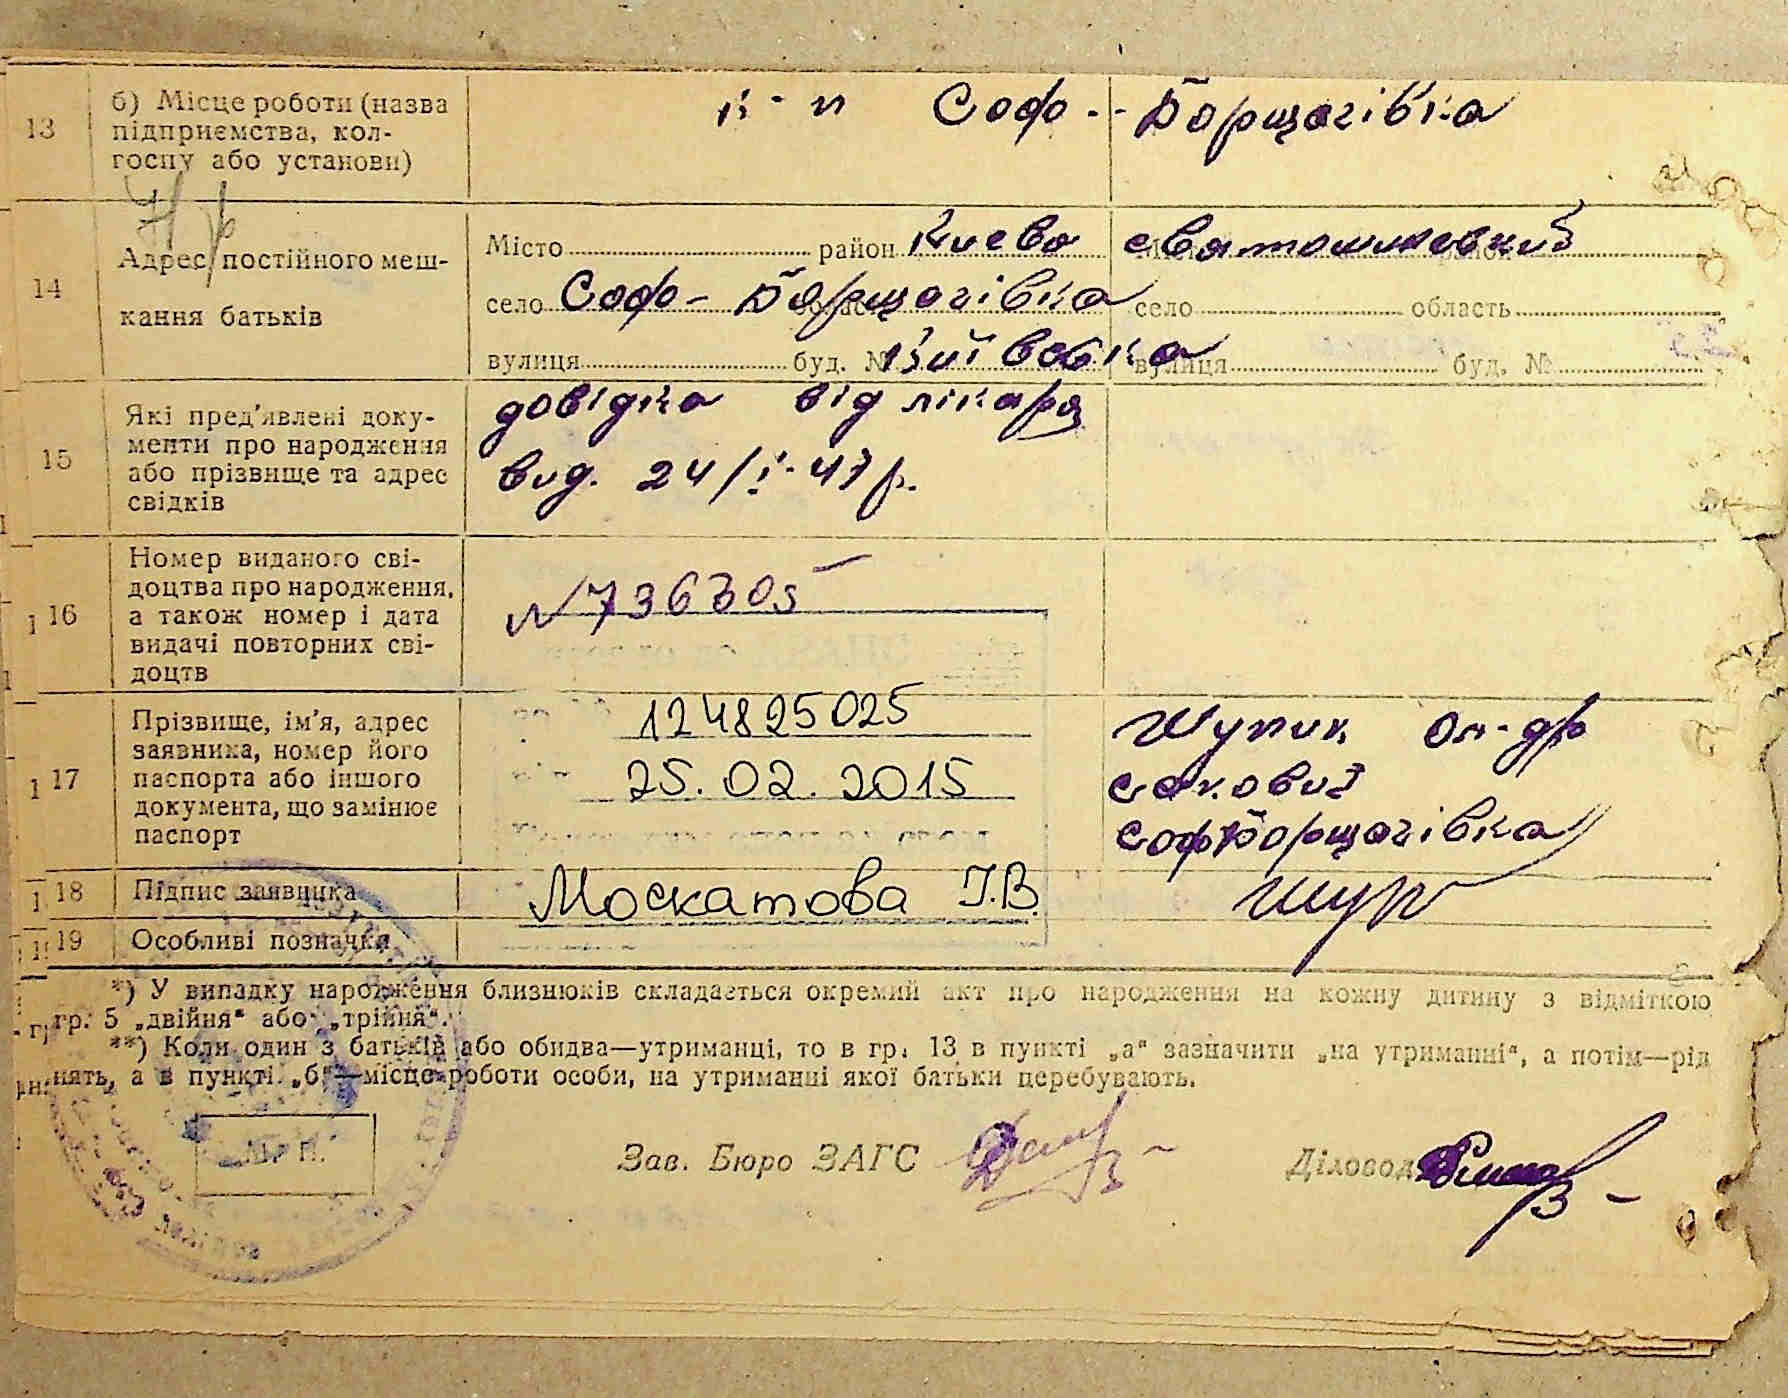 13
б) Місце роботи (назва
підприємства, кол-
госпу або установи)
к-п Соф.-Борщагівка
14
Адрес постійного меш-
кання батьків
Місто район Києво Святошинський
село Соф-Борщагівка село область
вулиця буд. № Київська вулиця буд. №
15
Які пред'явлені доку-
менти про народження
або прізвище та адрес
свідків
довідка від лікаря
вид. 24/I-47 р.
16
Номер виданого сві-
доцтва про народження,
а також номер і дата
видачі повторних сві-
доцтв
№736305
17
Прізвище, ім'я, адрес
заявника, номер його
паспорта або іншого
документа, що замінює
паспорт
124825025
25.02.2015
Шупик Ол-др
Сакович
Соф Борщагівка
18
Підпис заявника
Москатова І.В.
19
Особливі позначки
*) У випадку народження близнюків складається окремий акт про народження на кожну дитину з відміткою
гр. 5 „двійня“ або „трійня“.
**) Коли один з батьків або обидва—утриманці, то в гр. 13 в пункті „а“ зазначити „на утриманні“, а потім—рід
нять, а в пункті „б“—місце роботи особи, на утриманні якої батьки перебувають.
М. П.
Зав. Бюро ЗАГС
Діловод